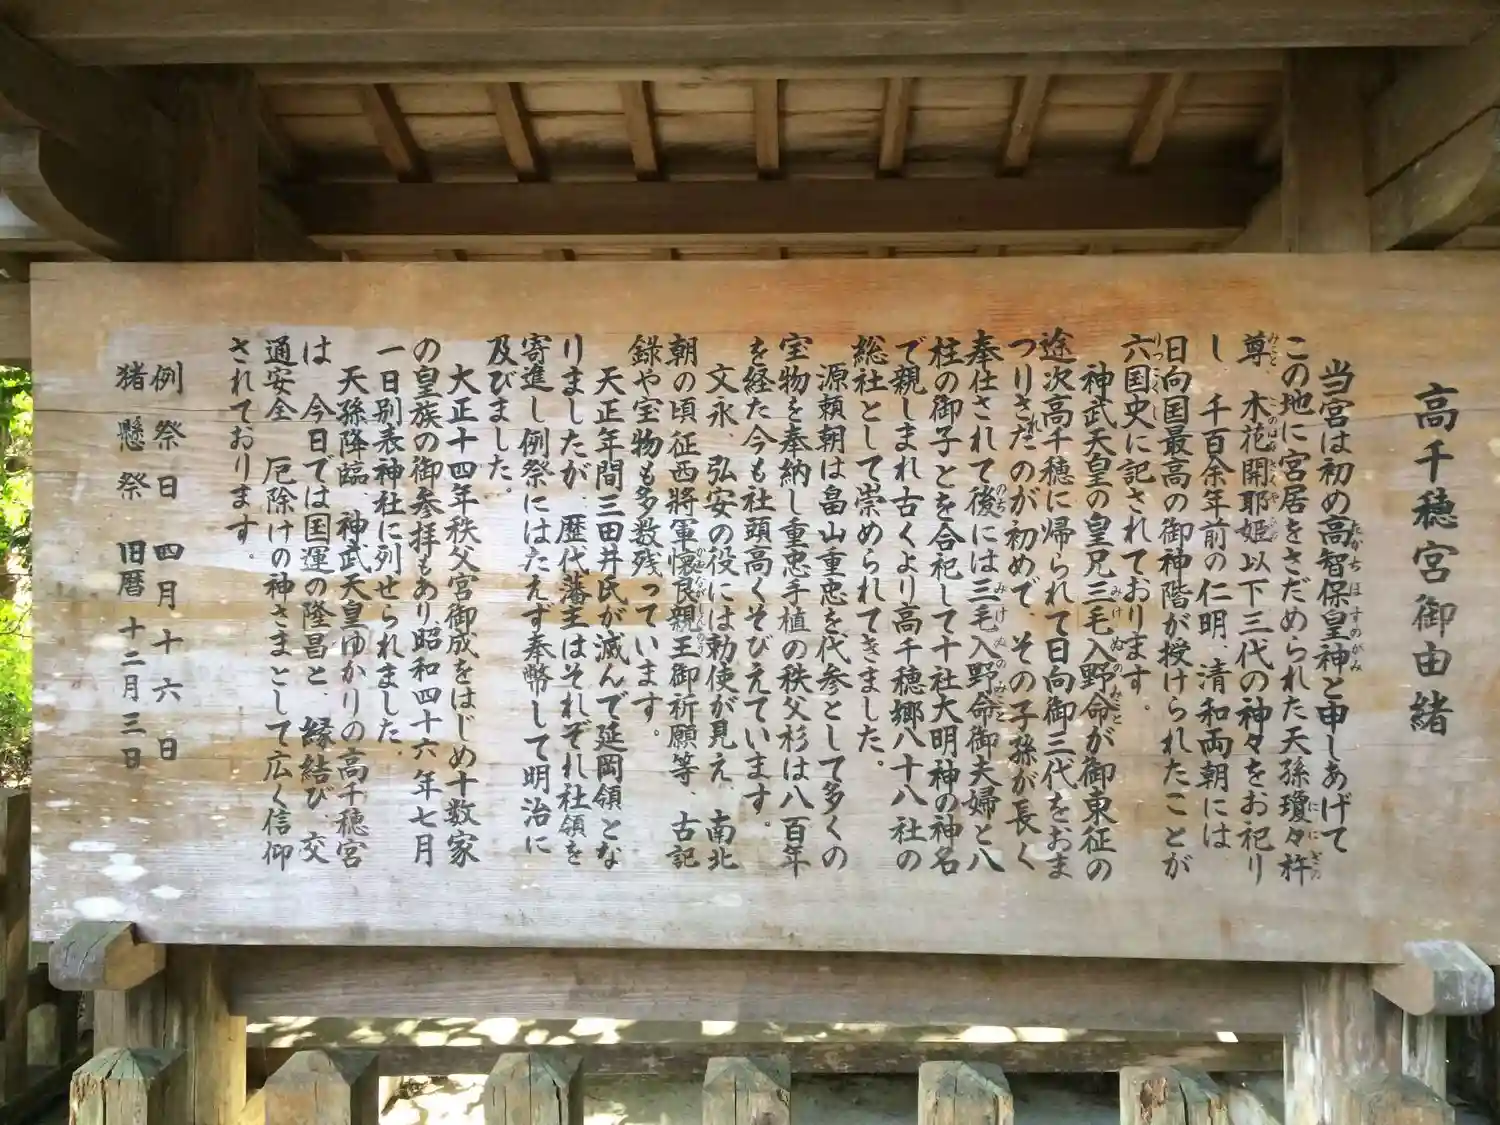 高千穂宮御由緒
当宮は初め高智保皇神と申しあげて
この地に宮居をさだめられた天孫瓊々杵
尊 木花開耶姫以下三代の神々をお祀り
し 千百余年前の仁明、清和両朝には
日向国最高の御神階が授けられたことが
六国史に記されております。
神武天皇の皇兄三毛入野命が御東征の
途次高千穂に帰られて日向御三代をおま
つりさだのが初めで、その子孫が長く
奉仕されて後には三毛入野命御夫婦と八
柱の御子とを合祀して十社大明神の神名
で親しまれ古くより高千穂郷八十八社の
総社として崇められてきました。
源頼朝は畠山重忠を代参として多くの
宝物を奉納し重忠手植の秩父杉は八百年
を経た今も社頭高くそびえています。
文永、弘安の役には勅使が見え、南北
朝の頃征西将軍懐良親王御祈願等、古記
録や宝物も多数残っています。
天正年間三田井氏が滅んで延岡領とな
りましたが、歴代藩主はそれぞれ社領を
寄進し例祭にはたえず奉幣して明治に
及びました。
大正十四年秩父宮御成をはじめ十数家
の皇族の御参拝もあり、昭和四十六年七月
一日別表神社に列せられました。
天孫降臨、神武天皇ゆかりの高千穂宮
は 今日では国運の隆昌と、縁結び、交
通安全 厄除けの神さまとして広く信仰
されております。
例祭日 四月十六日
猪懸祭 旧暦 十二月三日